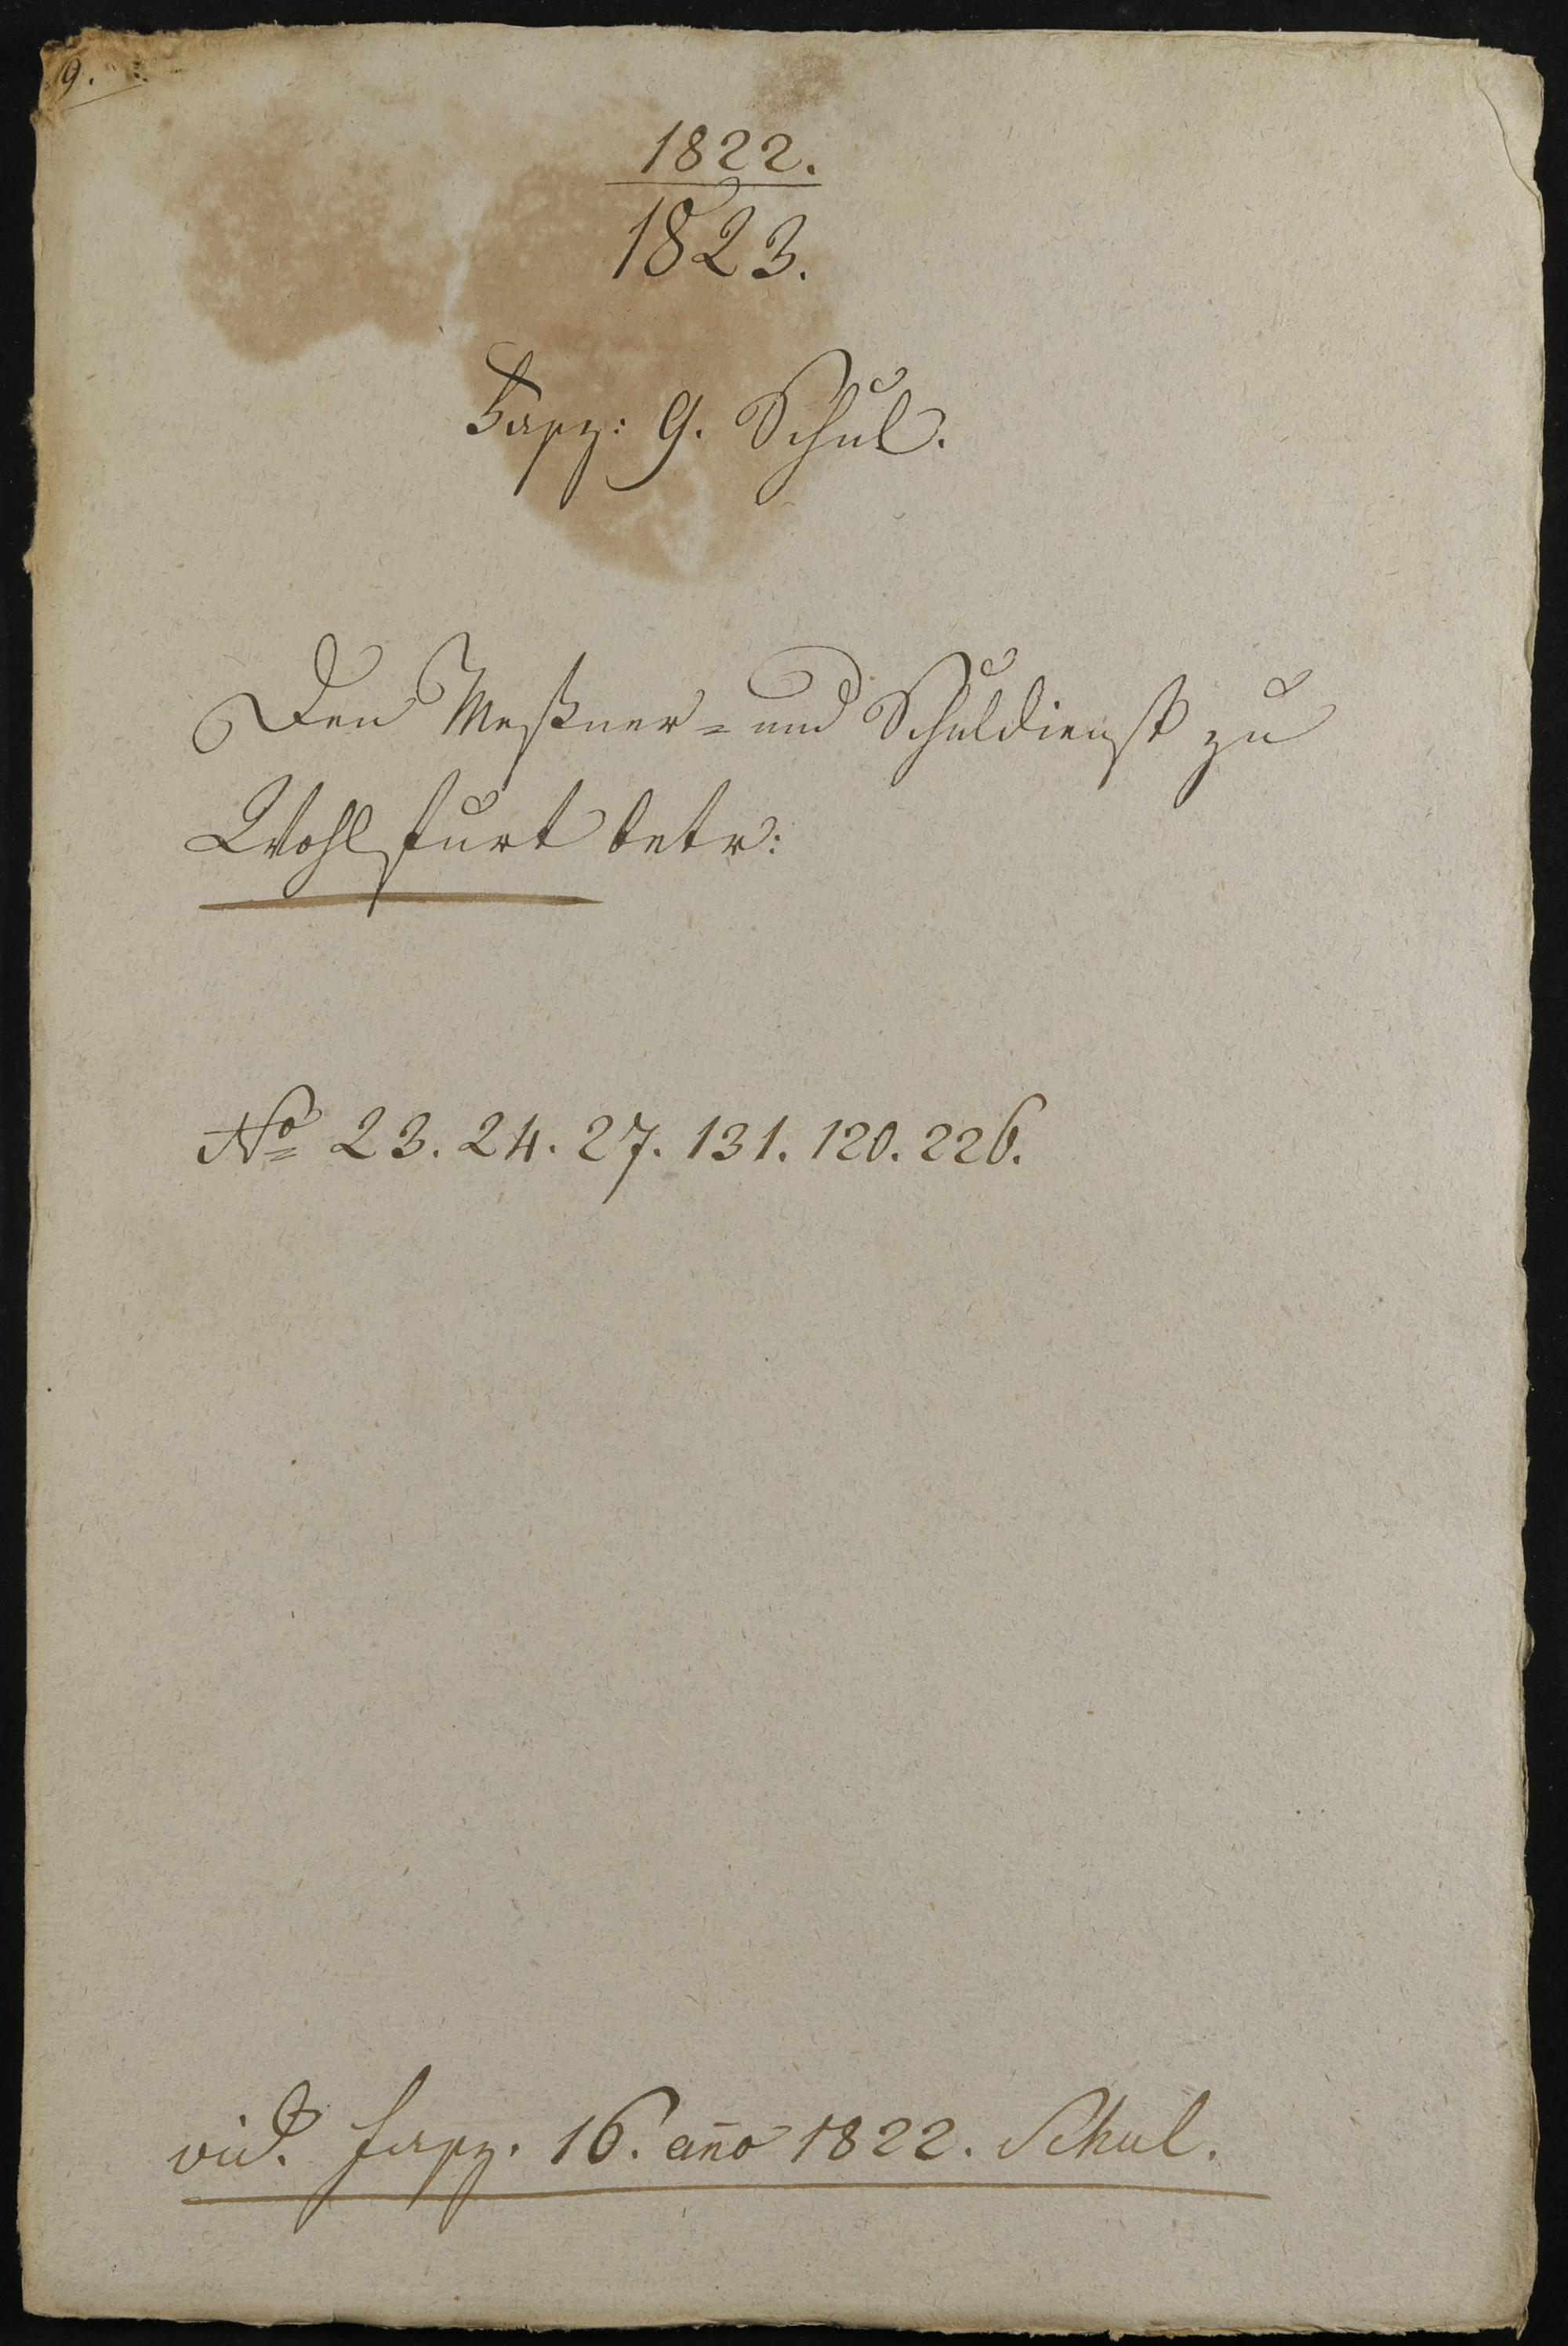 9.
1822.
1823.
Fasz: 9. Schul.
Den Meßner= und Schuldienst zu
Wohlfurt betr:
No 23. 24. 27. 131. 120. 226.
vid. fasz. 16. año 1822. Schul.